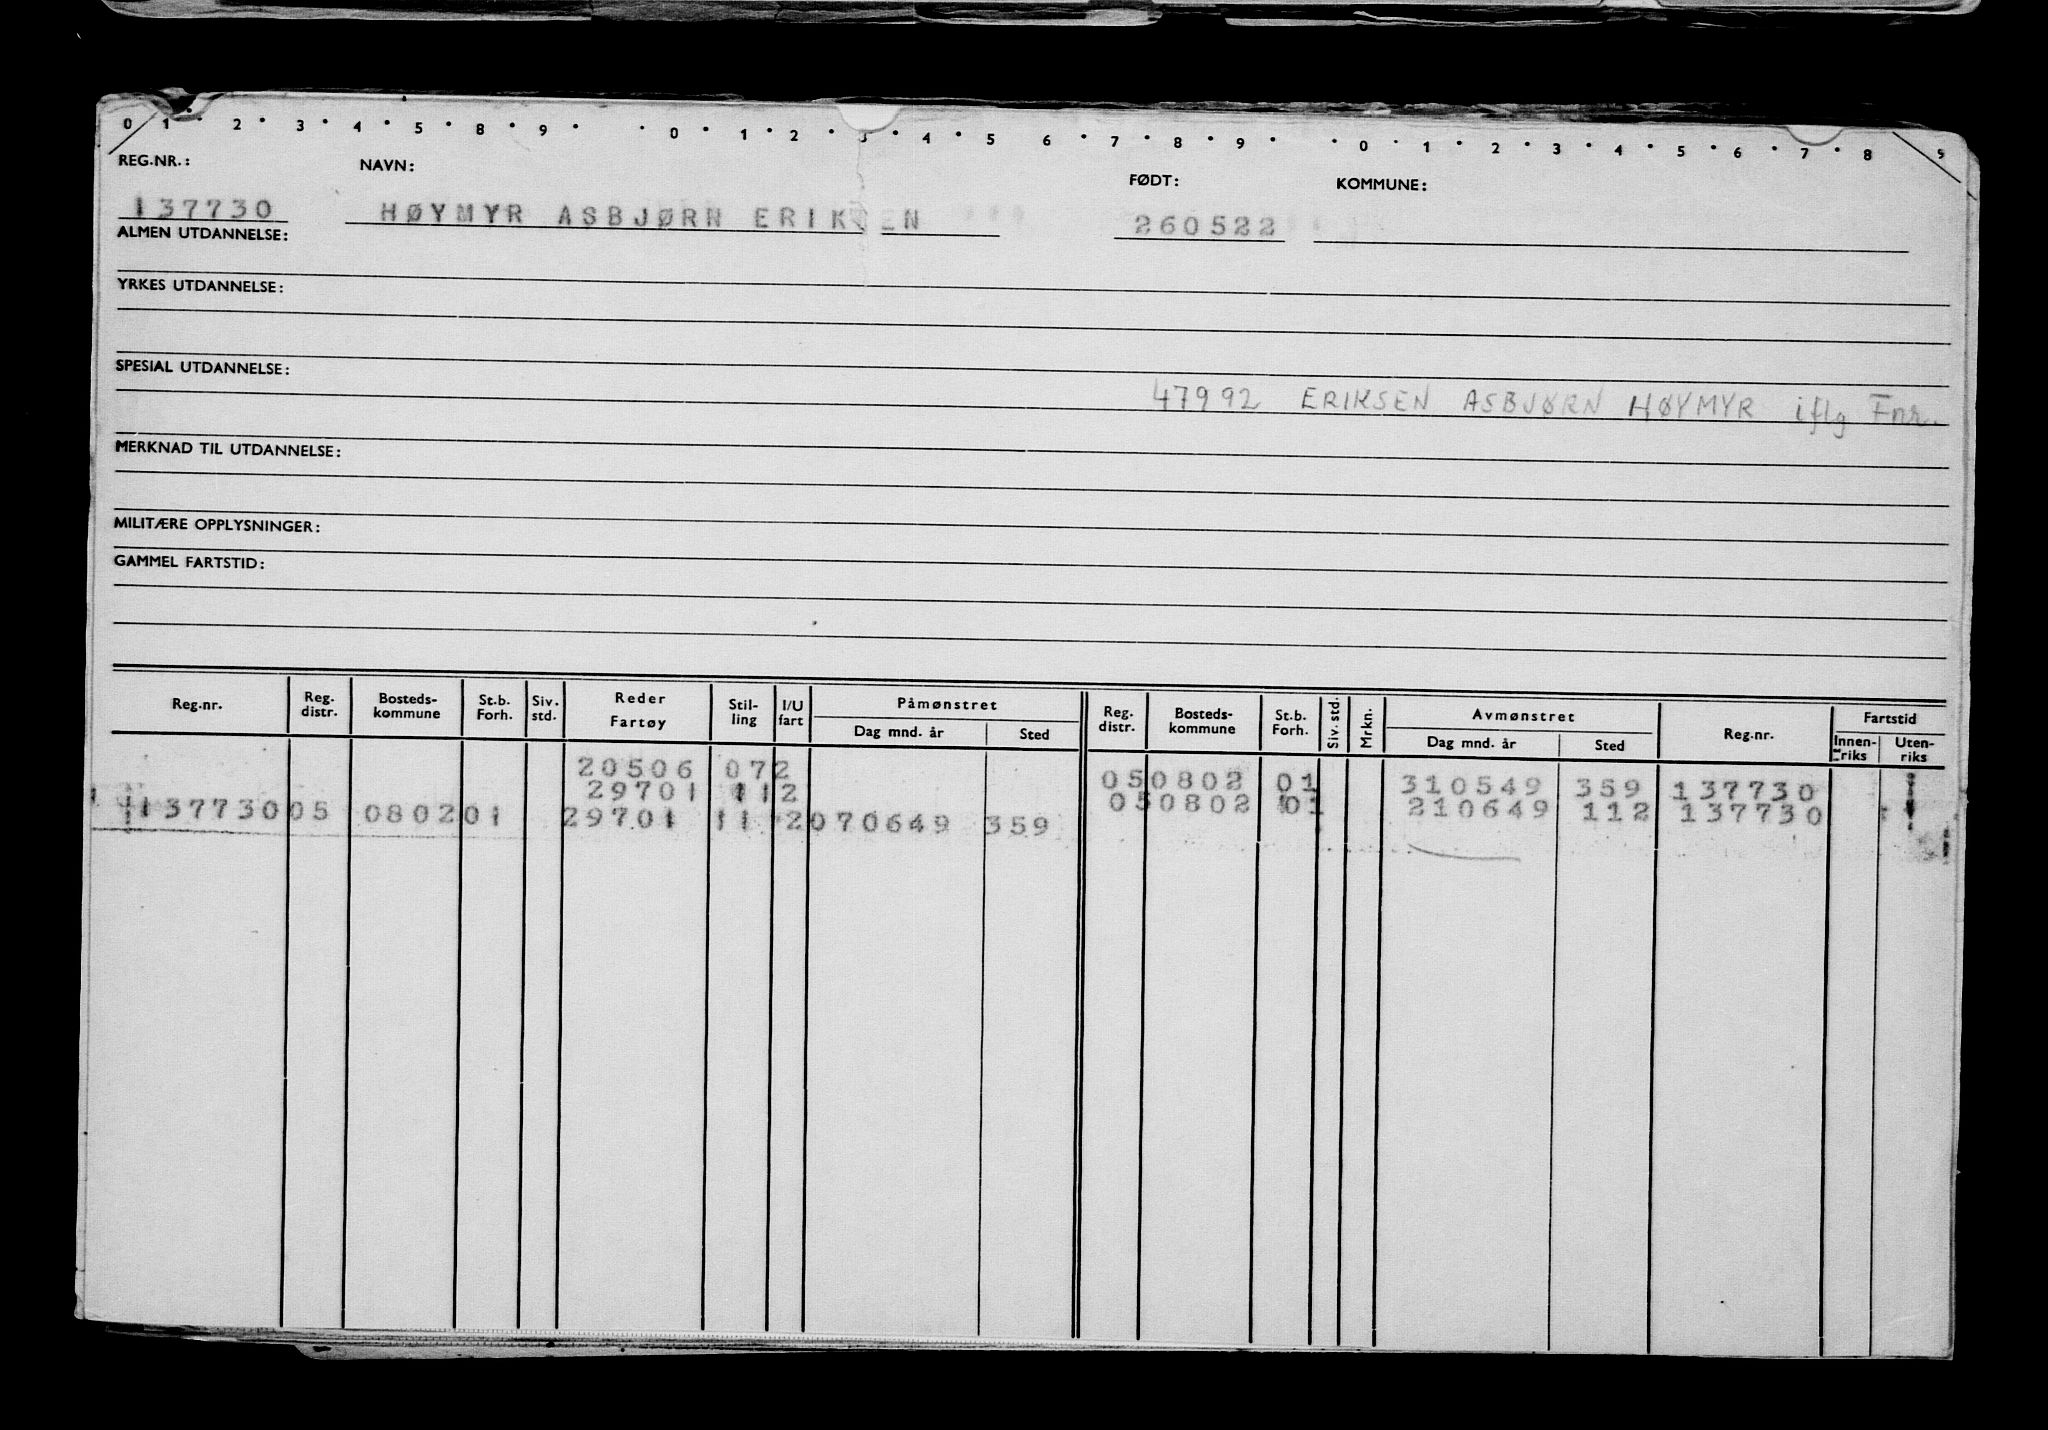 0 1 2 3 4 5 8 9 0 1 2 3 4 5 6 7 8 9 0 1 2 3 4 5 6 7 8 9
REG.NR.: NAVN: FØDT: KOMMUNE:
137730 HØYMYR ASBJØRN ERIKSEN 260522
ALMEN UTDANNELSE:
YRKES UTDANNELSE:
SPESIAL UTDANNELSE:
47992 ERIKSEN ASBJØRN HØYMYR iflg Fnr.
MERKNAD TIL UTDANNELSE:
MILITÆRE OPPLYSNINGER:
GAMMEL FARTSTID:
Reg.nr. Reg. distr. Bosteds-kommune St.b. Forh. Siv. std. Reder Fartøy Stil-ling I/U fart Påmønstret Dag mnd. år Sted Reg. distr. Bosteds-kommune St.b. Forh. Siv. std. Mrkn. Avmønstret Dag mnd. år Sted Reg.nr. Fartstid Innen-riks Uten-riks
20506 072 050802 01 310549 359 137730
29701 112 050802 01 210649 112 137730
137730 05 0802 01 29701 11 2 070649 359